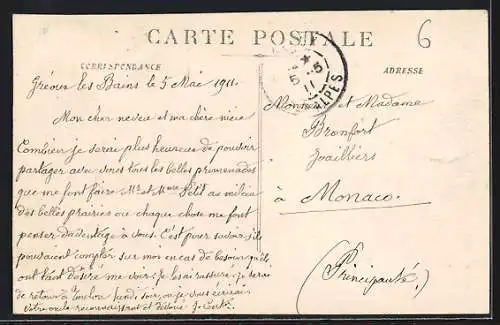 CARTE POSTALE
6
CORRESPONDANCE
ADRESSE
Gréoux les Bains le 5 Mai 1911.
Mon cher neveu et ma chère nièce
Combien je serai plus heureuse de pouvoir
partager avec vous tous les belles promenades
que me font faire Mr et Mme Petit au milieu
des belles prairies ou chaque chose me font
penser davantage à vous. C'est pour savoir s'ils
pouvaient compter sur moi en cas de besoin qu'ils
ont tant désiré me voir; je les ai rassuré. Je serai
de retour à Toulon lundi soir, ou je vous écrirai
Votre oncle reconnaissant et dévoué J.
5 -5
11
ALPES
Monsieur et Madame
Bronfort
Joailliers
à Monaco.
(Principauté)